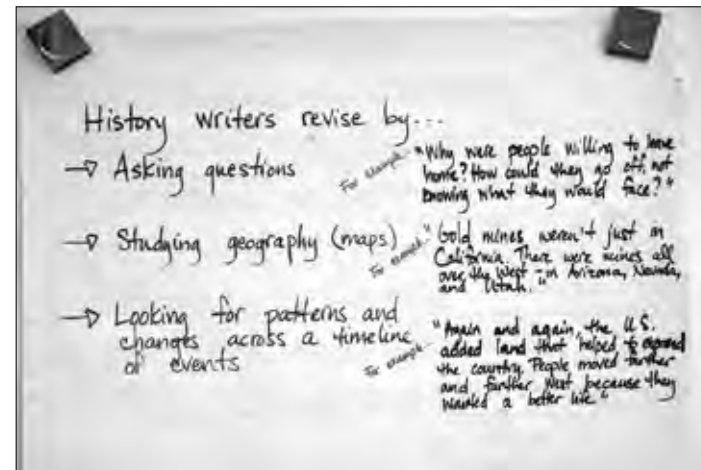 History writers revise by...
→ Asking questions
For example...
"Why were people willing to leave
home? How could they go off, not
knowing what they would face?"
→ Studying geography (maps)
For example...
"Gold mines weren't just in
California. There were mines all
over the West - in Arizona, Nevada,
and Utah."
→ Looking for patterns and
changes across a timeline
of events
For example...
"Again and again, the U.S.
added land that helped to expand
the country. People moved farther
and farther West because they
wanted a better life."